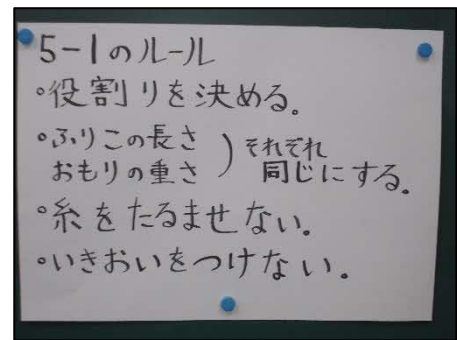 5-1のルール
°役割りを決める。
°ふりこの長さ
おもりの重さ
)それぞれ
同じにする。
°糸をたるませない。
°いきおいをつけない。